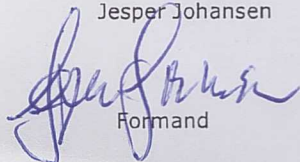 Jesper Johansen
Formand